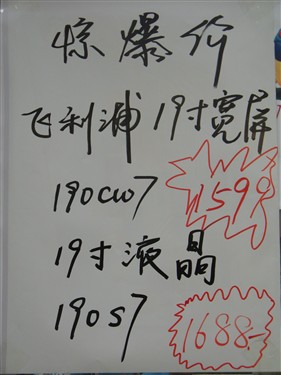 惊爆价
飞利浦 19寸宽屏
190CW7 1599
19寸液晶
190S7 1688.-